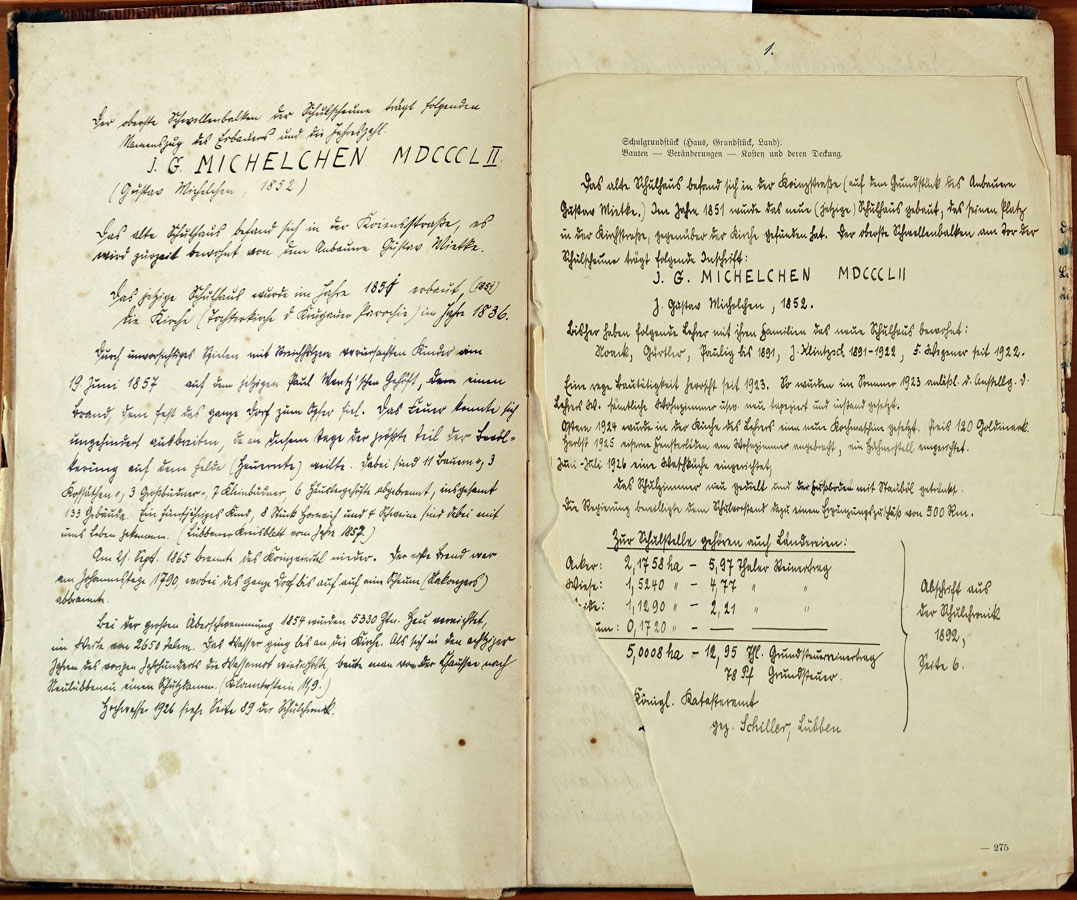 Der oberste Schwellenbalken der Schulscheune trägt folgenden
Namenszug des Erbauers und die Jahreszahl.
J. G. MICHELCHEN MDCCCLII.
(Gustav Michelchen, 1852)
Das alte Schulhaus befand sich in der Kriensstraße, es
wird zurzeit bewohnt von dem Anbauer Gustav Mietke.
Das jetzige Schulhaus wurde im Jahre 1851 erbaut, (1851)
die Kirche (Tochterkirche d. Krugauer Parochie) im Jahre 1836.
Durch unvorsichtiges Spielen mit Streichhölzern verursachten Kinder am
19 Juni 1857 auf dem jetzigen Paul Wentz'schen Gehöft, einen
Brand, dem fast das ganze Dorf zum Opfer fiel. Das Feuer konnte sich
ungehindert ausbreiten, da an diesem Tage der größte Teil der Bevöl-
kerung auf dem Felde (Heuernte) weilte. Dabei sind 11 Bauern, 3
Kossäthen, 3 Großbüdner, 7 Kleinbüdner, 6 Häuslergehöfte abgebrannt, insgesamt
133 Gebäude. Ein fünfjähriges Kind, 8 Stück Hornvieh und 4 Schweine sind dabei mit
ums Leben gekommen. (Lübbener Kreisblatt vom Jahre 1857.)
Am 21. Sept. 1865 brannte das nieder. Der erste Brand war
am Johannistage 1790, wobei das ganze Dorf bis auf auf ein Scheune
abbrannte.
Bei der großen Überschwemmung 1854 wurden 5330 Ztn. Heu vernichtet,
im Werte von 2658 Talern. Das Wasser ging bis an die Kirche. Als sich in den achtziger
Jahren des vorigen Jahrhunderts die Wassernot wiederholte, baute man von der Chaussee nach
Neulübbenau einen Schutzdamm.
Hochwasser 1926 siehe Seite 89 der Schulchronik.
1.
Schulgrundstück (Haus, Grundstück, Land).
Bauten — Veränderungen — Kosten und deren Deckung.
Das alte Schulhaus befand sich in der (auf dem Grundstück des Anbauern
Gustav Mietke.) Im Jahre 1851 wurde das neue (jetzige) Schulhaus gebaut, das seinen Platz
in der Kirchstraße, gegenüber der Kirche gefunden hat. Der oberste Schwellenbalken am Tor der
Schulscheune trägt folgende Inschrift:
J. G. MICHELCHEN MDCCCLII
J. Gustav Michelchen, 1852.
Bisher haben folgende Lehrer mit ihren Familien das neue Schulhaus bewohnt:
Noack, Gürtler, Paulig bis 1891, J. Klintzsch 1891-1922, F. Wegener seit 1922.
Eine rege Bautätigkeit herrscht seit 1923. So wurden im Sommer 1923 anläßl. d. Anstellg. d.
Lehrers W. sämtliche Wohnzimmer usw. neu tapeziert und instand gesetzt.
Ostern 1924 wurde in der Küche des Lehrers eine neue Kochmaschine gesetzt. Preis 120 Goldmark.
Herbst 1925 eiserne Fensterläden am Wohnzimmer angebracht, ein Hühnerstall eingerichtet.
Juni-Juli 1926 eine Waschküche eingerichtet,
das Schulzimmer neu gedielt und der Fußboden mit Stauböl getränkt.
Die Regierung bewilligte dem Schulvorstand dazu einen Ergänzungszuschuß von 500 Rm.
Zur Schulstelle gehören auch Ländereien:
Acker: 2,1758 ha — 5,97 Thaler Reinertrag
Wiese: 1,5240 " — 4,77 " "
1,1290 " — 2,21 " "
0,1720 " — —
5,0008 ha — 12,95 Thl. Grundsteuerreinertrag
78 Pf Grundsteuer.
Königl. Katasteramt
gez. Schiller, Lübben
Abschrift aus
der Schulchronik
1892,
Seite 6.
— 275